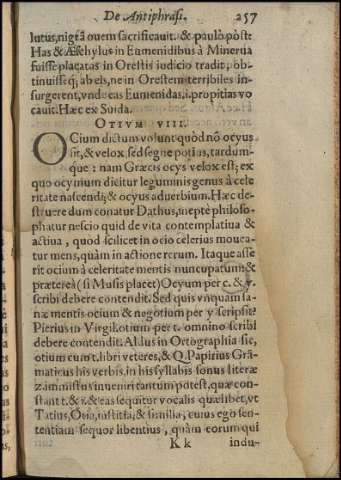 De Antiphrasi. 257
lutus, nigrã ouem sacrificauit. & paulò pòst
Has & Æschylus in Eumenidibus à Minerua
fuisse placatas in Orestis iudicio tradit, ob-
tinuisseq; ab eis, ne in Orestem terribiles in-
surgerent, vnde eas Eumenidas, i. propitias vo
cauit. Hæc ex Suida.
OTIVM VIII.
OCium dictum volunt quòd nõ ocyus
sit, & velox, sed segne potius, tardum-
que: nam Græcis ocys velox est; ex
quo ocymum dicitur leguminis genus à cele
ritate nascendi; & ocyus aduerbium. Hæc de-
struere dum conatur Dathus, ineptè philoso-
phatur nescio quid de vita contemplatiua &
actiua, quòd scilicet in ocio celerius mouea-
tur mens, quàm in actione rerum. Itaque asse
rit ocium à celeritate mentis nuncupatum; &
præterea (si Musis placet) Ocyum per c. & y.
scribi debere contendit. Sed quis vnquam sa-
næ mentis ocium & negotium per y scripsit?
Pierius in Virgil. otium per t. omnino scribi
debere contendit. Aldus in Ortographia sic,
otium cum t. libri veteres, & Q. Papirius Grã-
maticus his verbis, in his syllabis sonus literæ
z immistus inueniri tantum potest, quæ con-
stant t. & i. & eas sequitur vocalis quælibet, vt
Tatius, Otia, iustitia, & similia, cuius ego sen-
tentiam sequor libentius, quàm eorum qui
Kk indu-